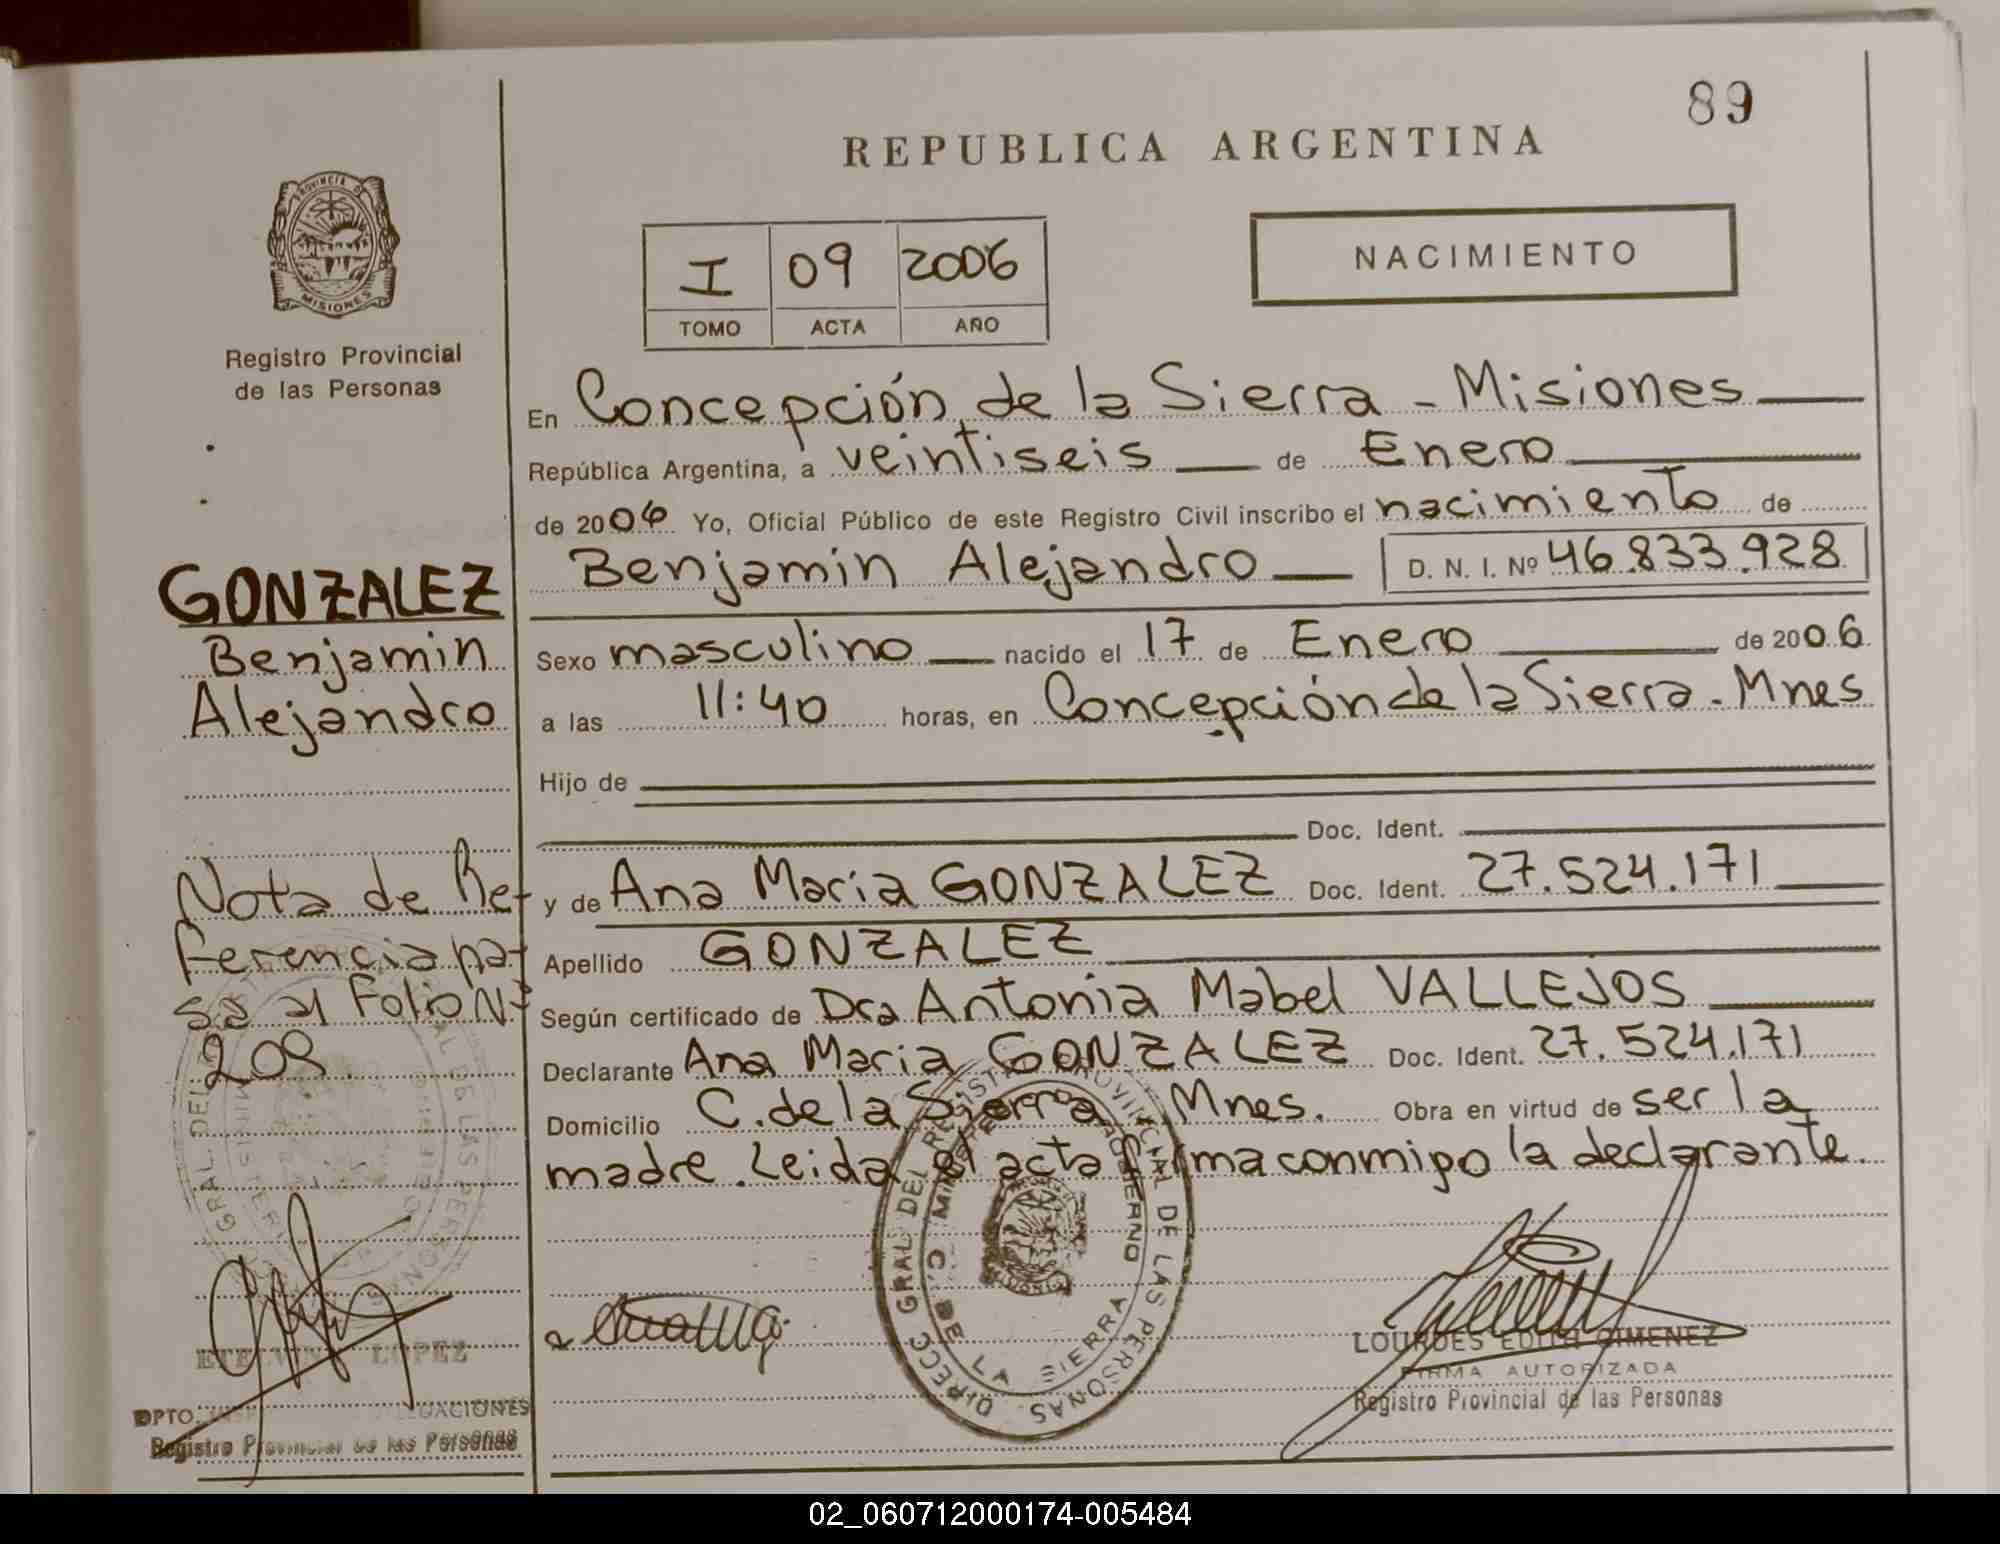 89
REPUBLICA ARGENTINA
PROVINCIA D
MISIONES
Registro Provincial
de las Personas
I 09 2006
TOMO ACTA AÑO
NACIMIENTO
En Concepción de la Sierra - Misiones
República Argentina, a veintiseis de Enero
de 2006 Yo, Oficial Público de este Registro Civil inscribo el nacimiento de
Benjamin Alejandro D. N. I. Nº 46.833.928
Sexo masculino nacido el 17 de Enero de 2006
a las 11:40 horas, en Concepción de la Sierra - Mnes
Hijo de
Doc. Ident.
y de Ana Maria GONZALEZ Doc. Ident. 27.524.171
Apellido GONZALEZ
Según certificado de Dra Antonia Mabel VALLEJOS
Declarante Ana Maria GONZALEZ Doc. Ident. 27.524.171
Domicilio C. de la Sierra Mnes. Obra en virtud de ser la
madre. Leida el acta firma conmigo la declarante.
GONZALEZ
Benjamin
Alejandro
Nota de Re-
ferencia pa-
sa al Folio Nº
209.
DIRECC GRAL DEL REGISTRO PROVINCIAL DE LAS PERSONAS
C. DE LA SIERRA
GOBIERNO
LOPEZ
DPTO.
Registro Provincial de las Personas
LOURDES EDITH GIMENEZ
FIRMA AUTORIZADA
Registro Provincial de las Personas
02_060712000174-005484